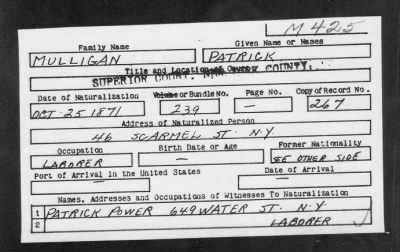 M425
Family Name Given Name or Names
MULLIGAN PATRICK
Title and Location of Court
SUPERIOR COURT, NEW YORK COUNTY.
Date of Naturalization Volume or Bundle No. Page No. Copy of Record No.
OCT-25 1871 239 — 267
Address of Naturalized Person
46 SCARMEL ST. N.Y.
Occupation Birth Date or Age Former Nationality
LABORER — SEE OTHER SIDE
Port of Arrival in the United States Date of Arrival
— —
Names, Addresses and Occupations of Witnesses To Naturalization
1 PATRICK POWER 649 WATER ST. N.Y.
2 LABORER